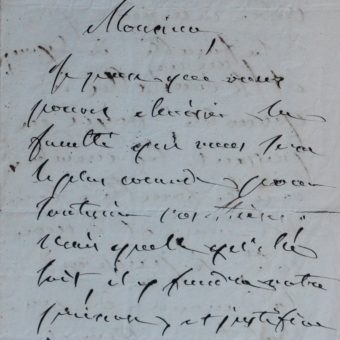 Monsieur,
Je pense que vous
pouvez choisir la
qui vous sera
le plus commode pour
mais quelle qu'elle
soit, il y faudra votre
présence, et justifier